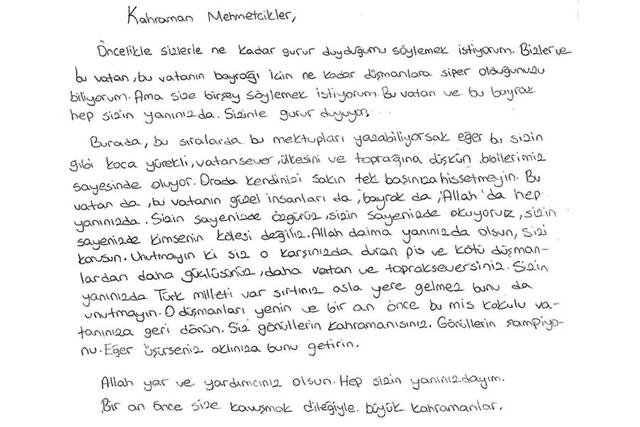 Kahraman Mehmetcikler,
Öncelikle sizlerle ne kadar gurur duyduğumu söylemek istiyorum. Bizler ve
bu vatan, bu vatanın bayrağı icin ne kadar düşmanlara siper olduğunuzu
biliyorum. Ama size birşey söylemek istiyorum. Bu vatan ve bu bayrak
hep sizin yanınızda. Sizinle gurur duyuyor.
Burada, bu sıralarda bu mektupları yazabiliyorsak eğer bu sizin
gibi koca yürekli, vatansever, ülkesini ve toprağına düşkün
sayesinde oluyor. Orada kendinizi sakın tek başınıza hissetmeyin. Bu
vatan da, bu vatanın güzel insanları da, bayrak da, Allah'da hep
yanınızda. Sizin sayenizde özgürüz, sizin sayenizde okuyoruz, sizin
sayenizde kimsenin kölesi değiliz. Allah daima yanınızda olsun, Sizi
korusun. Unutmayın ki siz o karşınızda duran pis ve kötü düşman-
lardan daha güçlüsünüz, daha vatan ve topraksseversiniz. Sizin
yanınızda Türk milleti var sırtınız asla yere gelmez bunu da
unutmayın. O düşmanları yenin ve bir an önce bu mis kokulu va-
tanınıza geri dönün. Siz gönüllerin kahramanısınız. Gönüllerin şampiyo-
nu. Eğer üşürseniz aklınıza bunu getirin.
Allah yar ve yardımcınız olsun. Hep sizin yanınızdayım.
Bir an önce size kavuşmak dileğiyle. büyük kahramanlar.